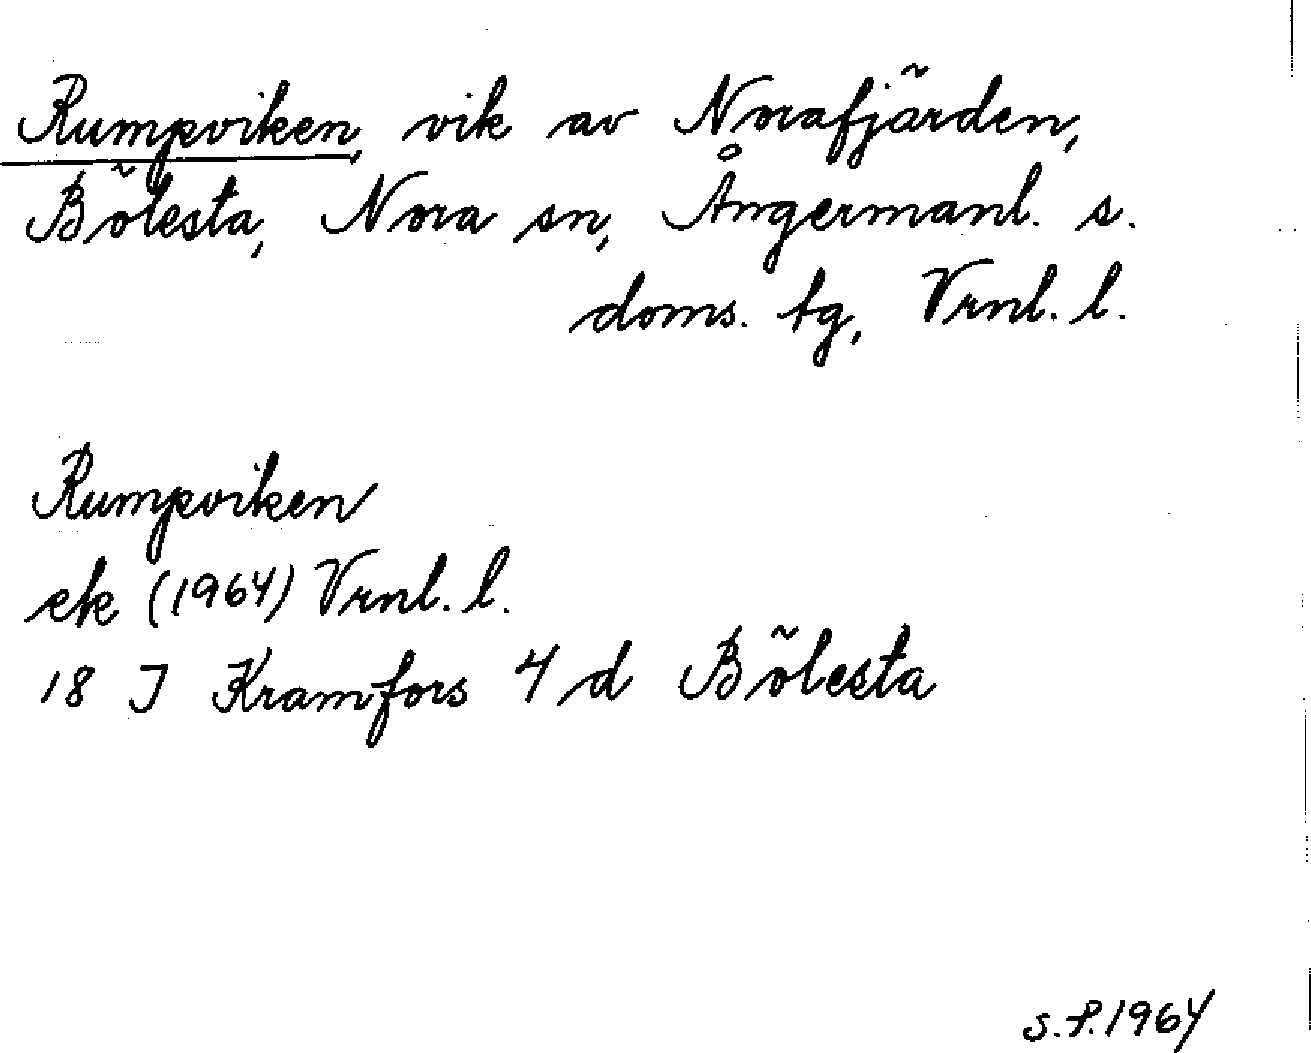 Rumpviken, vik av Norafjärden,
Bölesta, Nora sn, Ångermanl. s.
doms. tg, Vrnl. l.
Rumpviken
ek (1964) Vrnl. l.
18 J Kramfors 4 d Bölesta
S.P. 1964